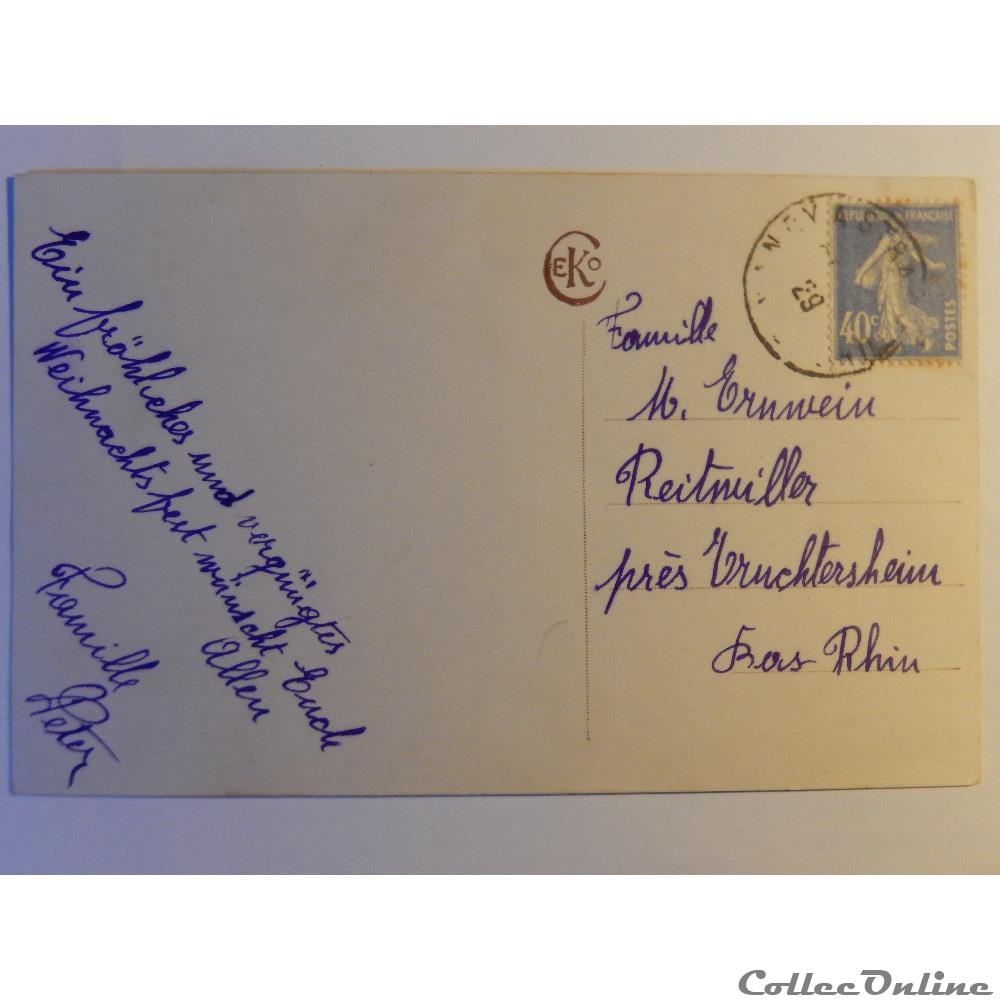 Ein fröhliches und vergnügtes
Weihnachtsfest wünscht Euch
Allen
Famille
Peter
CEKO
REPUBLIQUE FRANÇAISE
40c
POSTES
29
Famille
M. Ernwein
Reitwiller
près Truchtersheim
Bas Rhin
CollecOnline